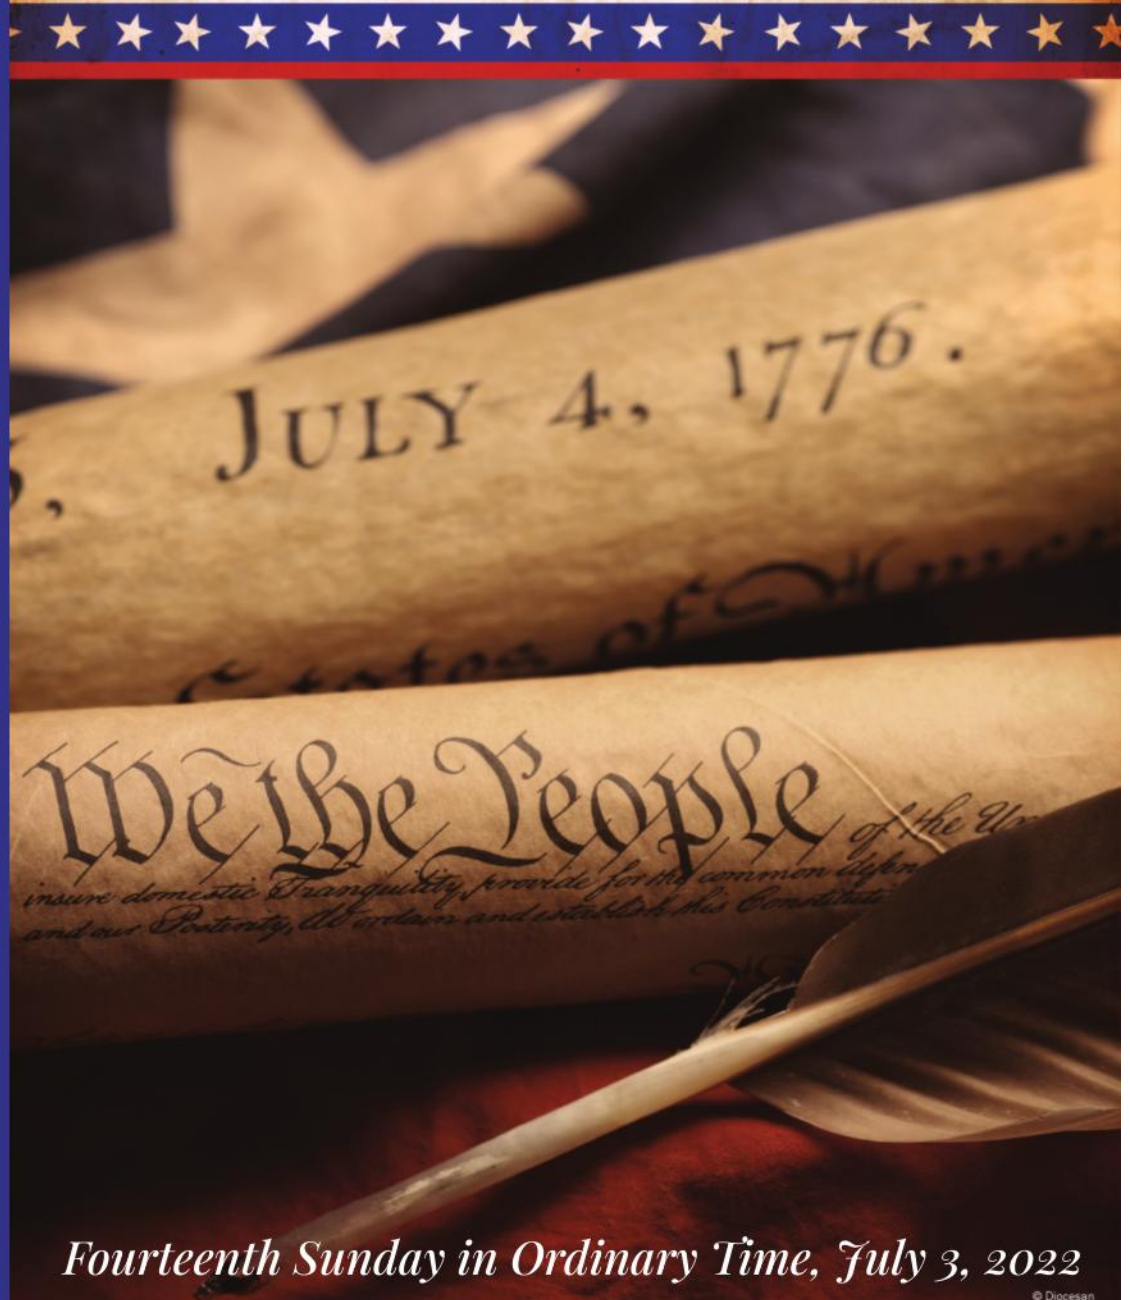 JULY 4, 1776.
States of Amer
We the People of the Un
insure domestic Tranquility, provide for the common defen
and our Posterity, do ordain and establish this Constituti
Fourteenth Sunday in Ordinary Time, July 3, 2022
© Diocesan